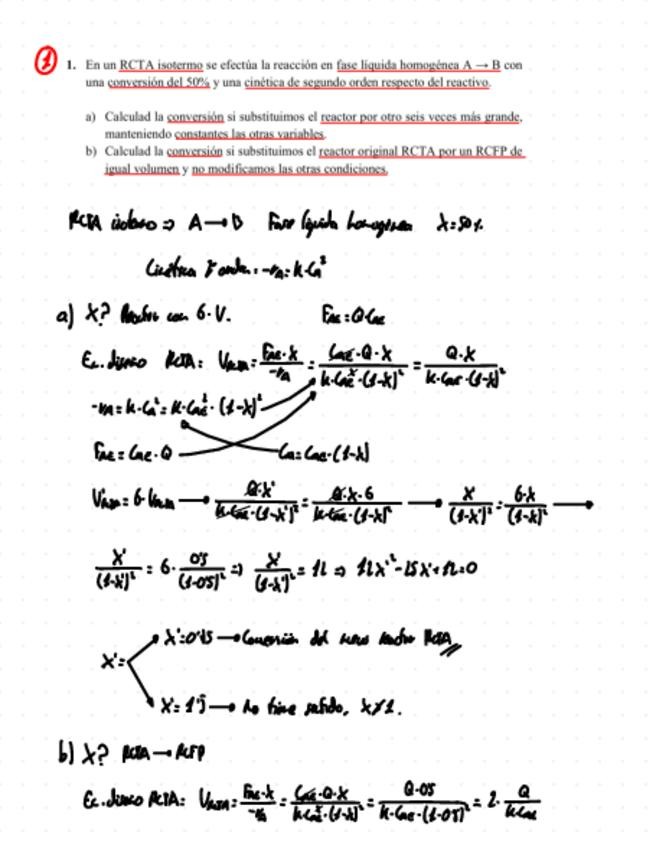 1
1. En un RCTA isotermo se efectúa la reacción en fase líquida homogénea A → B con
una conversión del 50% y una cinética de segundo orden respecto del reactivo.
a) Calculad la conversión si substituimos el reactor por otro seis veces más grande,
manteniendo constantes las otras variables.
b) Calculad la conversión si substituimos el reactor original RCTA por un RCFP de
igual volumen y no modificamos las otras condiciones.
RCTA isotermo ⇒ A → B Fase líquida homogénea X=50%
Cinética 2º orden: -rA=k·CA²
a) X? Reactor con 6·V. FAE=Q·CAE
Ec. diseño RCTA: VRCTA = FAE·X / -rA = CAE·Q·X / k·CAE²·(1-X)² = Q·X / k·CAE·(1-X)²
-rA=k·CA²=k·CAE²·(1-X)²
FAE=CAE·Q CA=CAE·(1-X)
V'RCTA=6·VRCTA → Q·X' / k·CAE·(1-X')² = Q·X·6 / k·CAE·(1-X)² → X' / (1-X')² = 6·X / (1-X)² →
X' / (1-X')² = 6· 0'5 / (1-0'5)² ⇒ X' / (1-X')² = 12 ⇒ 12X'²-25X'+12=0
X'= X'=0'75 → Conversión del nuevo reactor RCTA
X'=1'3 → No tiene sentido, X≯1.
b) X? RCTA → RCFP
Ec. diseño RCTA: VRCTA = FAE·X / -rA = CAE·Q·X / k·CAE²·(1-X)² = Q·0'5 / k·CAE·(1-0'5)² = 2· Q / k·CAE